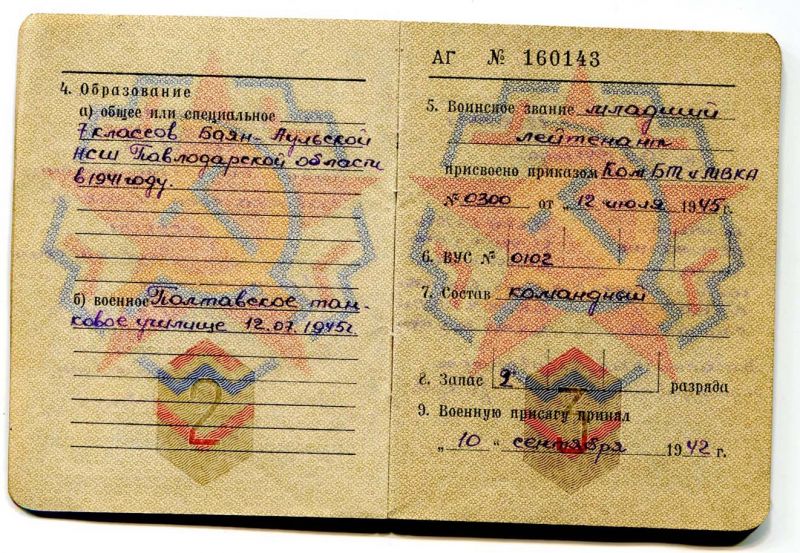 4. Образование
а) общее или специальное
7 классов Баян-Аульской
НСШ Павлодарской области
в 1941 году.
б) военное Полтавское тан-
ковое училище 12.07.1945г.
2
АГ № 160143
5. Воинское звание младший
лейтенант
присвоено приказом Ком БТ и МВКА
№ 0300 от „12 июля 1945 г.
6. ВУС № 0102
7. Состав командный
8. Запас 2 разряда
9. Военную присягу принял
„10“ сентября 1942 г.
3